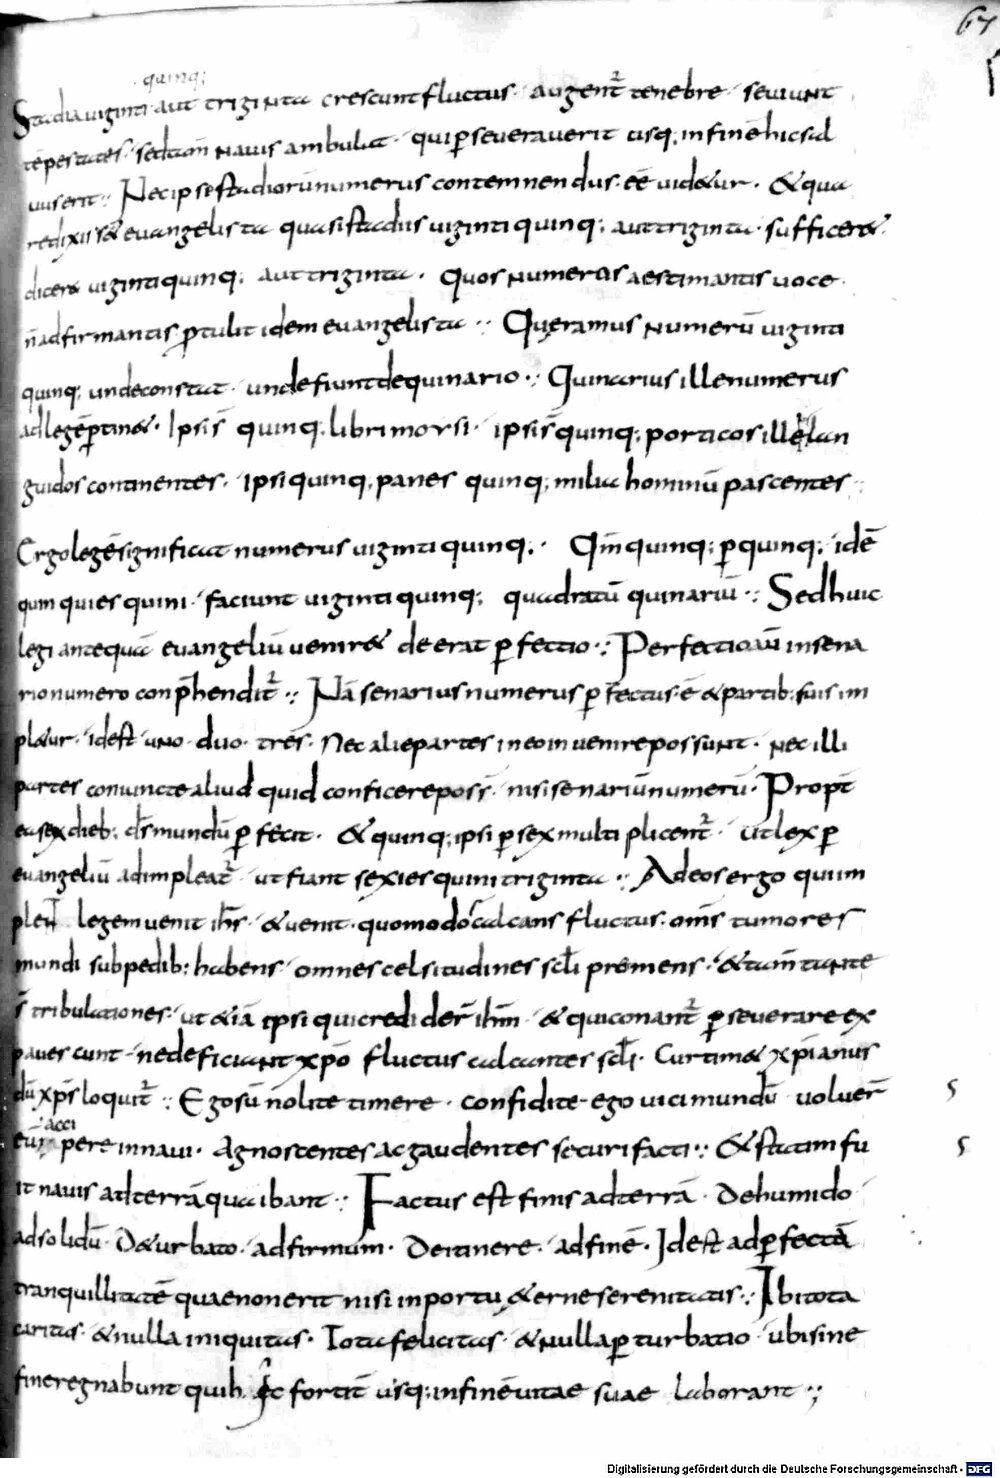 67
quinq;
Stadia viginti aut triginta crescunt fluctus · augent᷑ tenebre · seviunt
tēpestates · sed tam̄ navis ambulat · qui pseveraverit usq; in finē hic sal
vus erit · Nec ipse stadiorū numerus contemnendus · eē vidеtur · & qua
re dixisset evangelista quasi stadiis viginti quinq; aut triginta · sufficeret
dicere viginti quinq; aut triginta · Quos numeros aestimantis voce
n̄ adfirmantis ptulit idem evangelista · Queramus numerū viginti
quinq; unde constat · unde fiunt de quinario · Quinarius ille numerus
ad legē ptinet · Ipsi s̄ quinq; libri morsi · ipsi s̄ quinq; porticos ille lan
guidos continentes · ipsi quinq; panes quinq; milia hominū pascentes
Ergo legē significat numerus viginti quinq; · Qm̄ quinq; p quinq; idē
qum quies quini · faciunt viginti quinq; quadratū quinariū · Sed huic
legi antequā evangeliū veniret deerat pfectio · Perfectio aū in sena
rio numero conp̄hendit᷑ · Nā senarius numerus pfectus ē & partib; suis im
pletur · id est uno · duo · tres · Nec alie partes in eo inveniri possunt · nec illi
partes coniuncte aliud quid conficere poss̄ nisi senariū numerū · Propt̄
ea sex dieb; ds̄ mundū pfecit · & quinq; ipsi p sex multiplicent᷑ · ut lex p
evangeliū adimpleat᷑ · ut fiant sexies quini triginta · Ad eos ergo qui im
plen̄ legem venit ih̄s · & venit quomodo calcans fluctus · om̄s tumores
mundi sub pedib; habens · omnes celsitudines scl̄i premens · & tam̄ tante
s̄ tribulationes · ut etiā ipsi qui credider̄ ih̄m · & qui conant᷑ pseverare ex
pavescunt · ne deficiant xp̄o fluctus calcantes scl̄i · Cur timet xp̄ianus
dū xp̄s loquit᷑ · Ego sū nolite timere · confidite ego vici mundū voluer̄
acci
eū pere in navi · Agnoscentes ac gaudentes securi facti · & statim fu
it navis ad terrā qua ibant · Factus est finis ad terrā · De humido
ad solidū · De turbato · ad firmum · De itinere · ad finē · Id est ad pfectā
tranquillitatē quae non erit nisi in portu ęterne serenitatis · Ibi tota
caritas · & nulla iniquitas · Tota felicitas · & nulla pturbatio · ubi sine
fine regnabunt qui h fortit᷑ usq; in finē vitae suae laborant ·
Digitalisierung gefördert durch die Deutsche Forschungsgemeinschaft - DFG